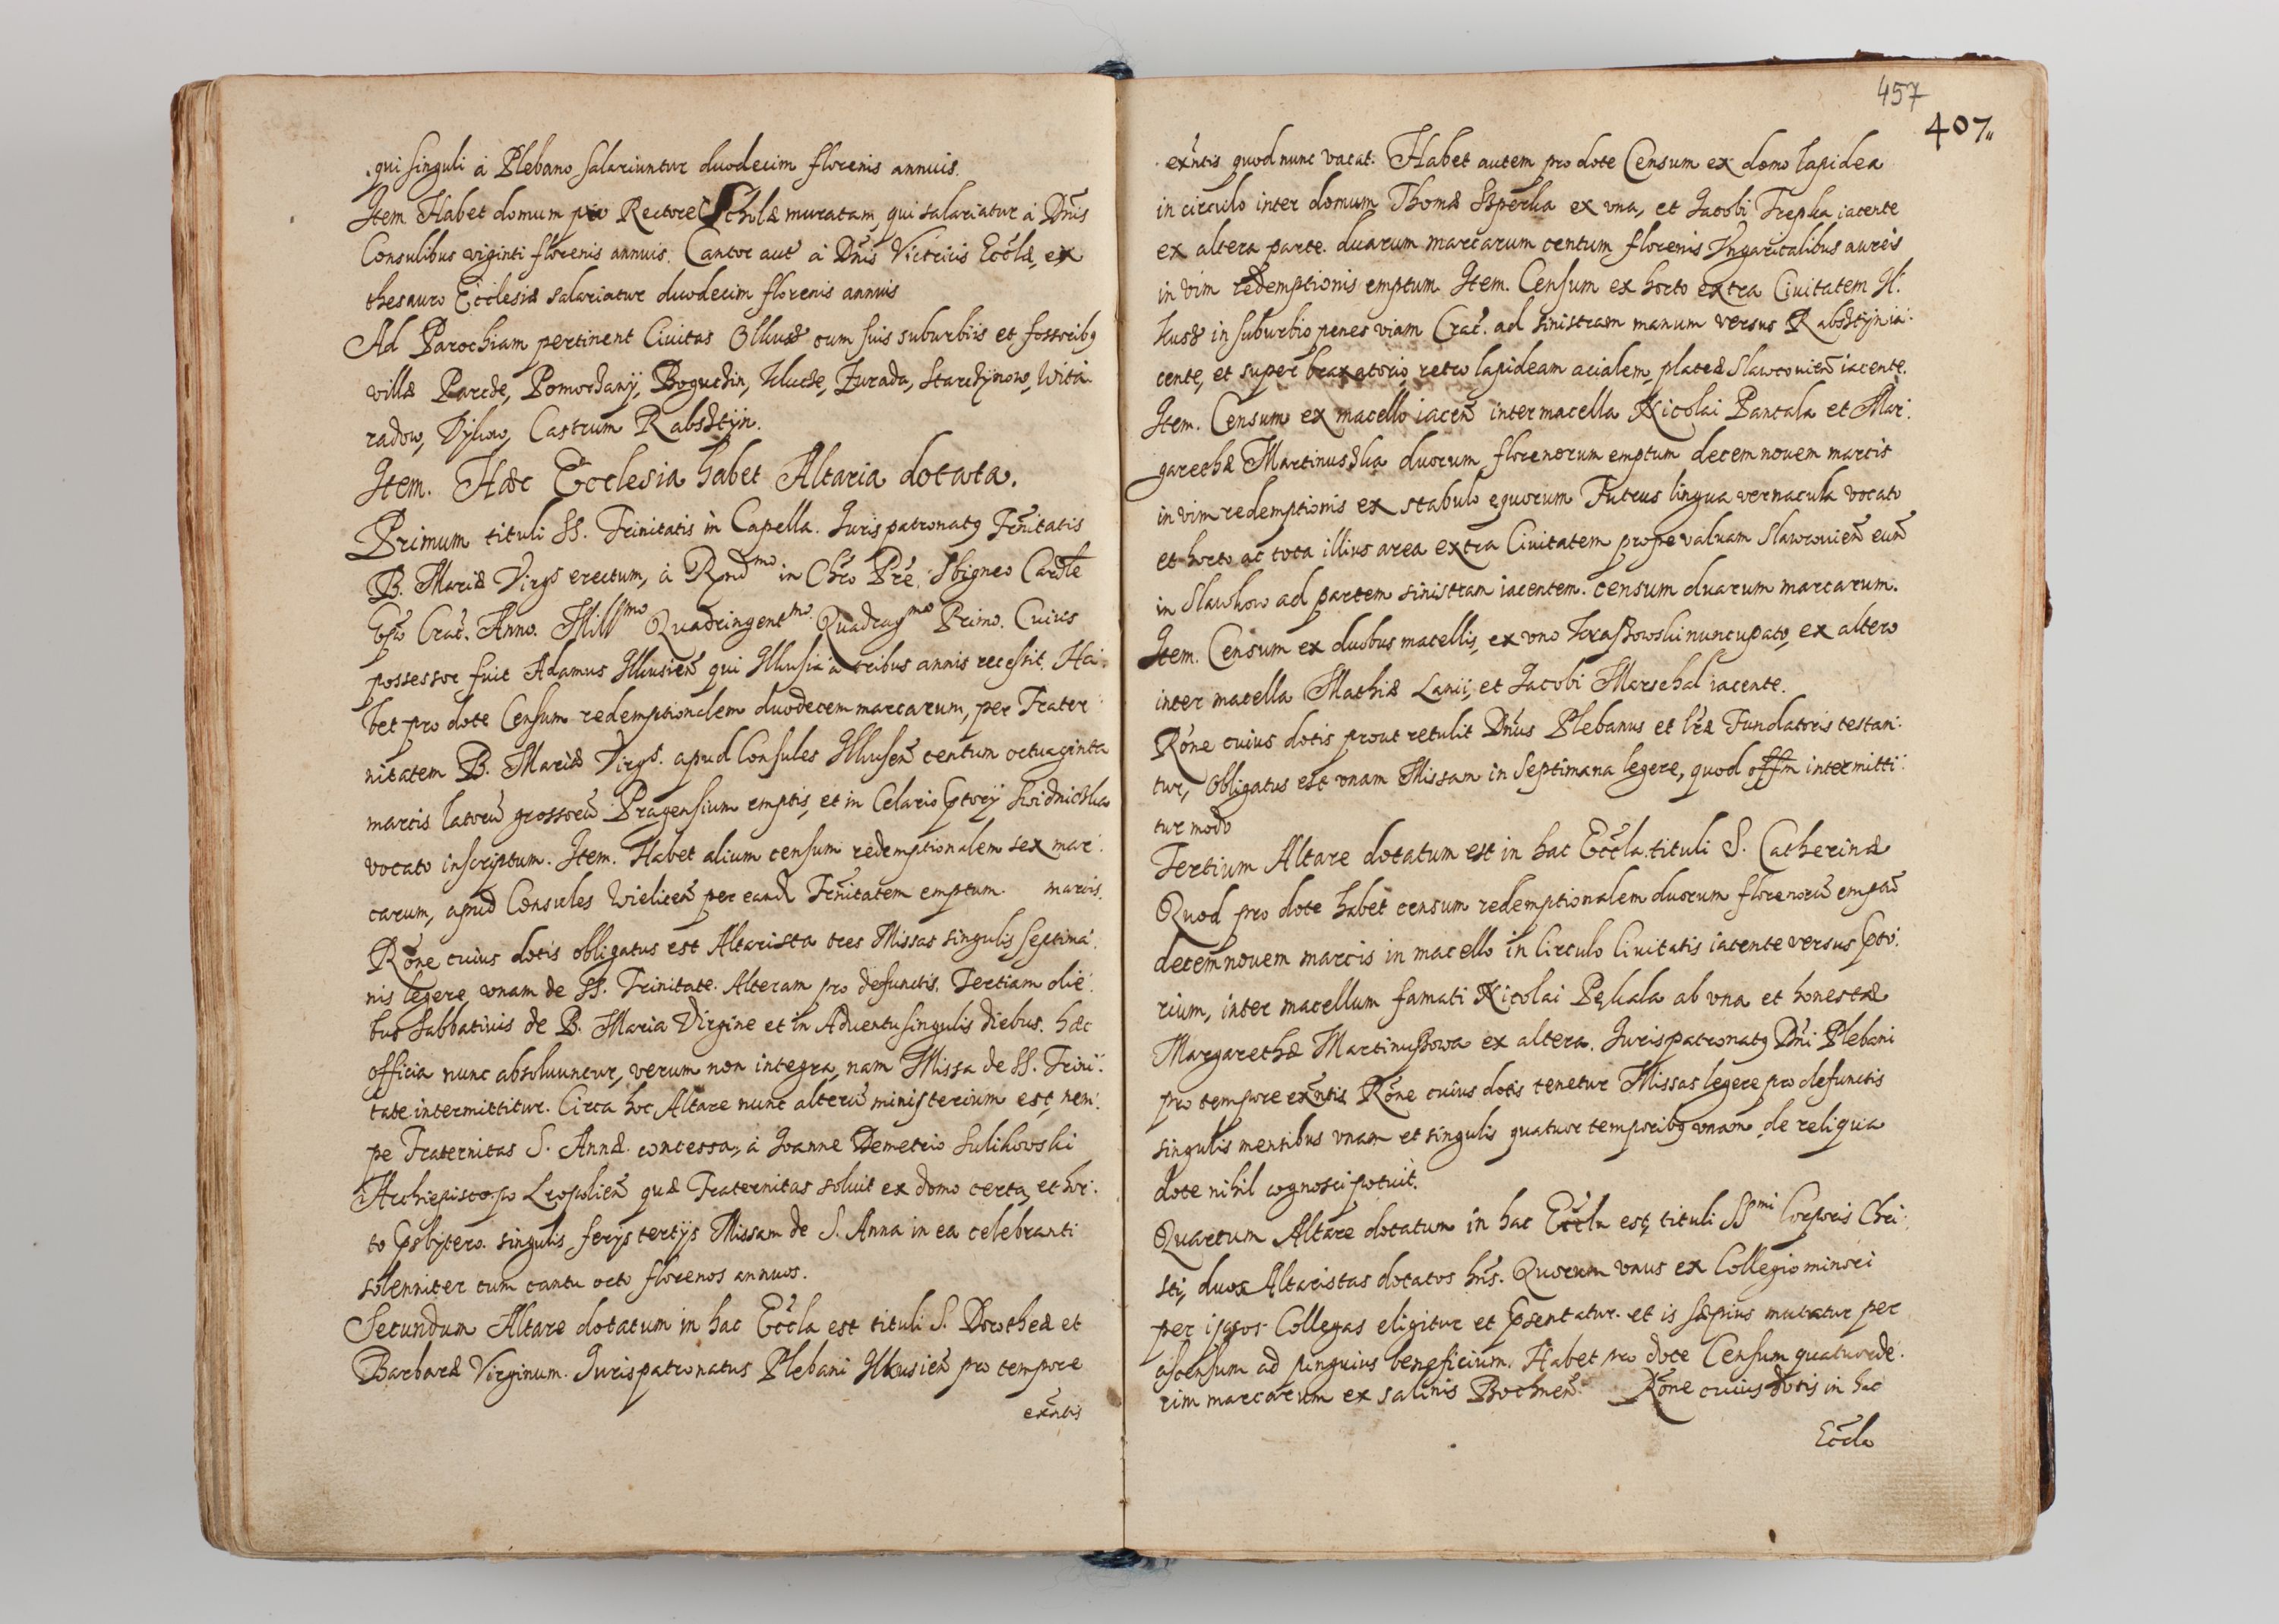 qui singuli à Plebano salariuntur duodecim florenis annuis.
Item Habet domum pro Rectore Scholæ muratam, qui salariatur à Dñis
Consulibus viginti florenis annuis. Cantor aut à Dñis Victricis Eccłæ, ex
thesauro Ecclesiæ salariatur duodecim florenis annuis
Ad Parochiam pertinent Ciuitas Olkusz cum suis suburbiis et fossoribq
villæ Parcze, Pomorzany, Boguczin, Klucze, Zurada, Starczynow, Wita
radow, Dykow, Castrum Rabsztyn.
Item. Hæc Ecclesia habet Altaria dotata.
Primum tituli SS. Trinitatis in Capella. Iuris patronatq Frñitatis
B. Mariæ Virgs erectum, à Rnd mo in Chro Pre. Sbigneo Cardle
Epo Crac. Anno. Mill mo Quadringent mo Quadrag mo Primo. Cuius
possessor fuit Adamus Ilkusien qui Ilkusia à tribus annis recessit. Ha:
bet pro dote Censum redemptionalem duodecem marcarum, per Frater:
nitatem B. Mariæ Virgs. apud Consules Ilkusen centum octuaginta
marcis latorū grossorū Pragensium emptis, et in Celario Cptorij Swidniczka
vocato inscriptum. Item. Habet alium censum redemptionalem sex mar:
carum, apud Consules Wielicen per eand Frñitatem emptum. marcis.
Rone cuius dotis obligatus est Altarista tres Missas singulis septima:
nis legere, vnam de SS. Trinitate. Alteram pro defunctis. Tertiam die:
bus Sabbativis de B. Maria Virgine et in Aduentu singulis diebus. hæc
officia nunc absoluuntur, verum non integra, nam Missa de SS. Trini:
tate intermittitur. Circa hoc Altare nunc alterū ministerium est, nem:
pe Fraternitas S. Annæ. concessa, à Ioanne Demetrio Sulikowski
Archiepiscopo Leopolien quæ Fraternitas soluit ex domo certa, et hor:
to Psbytero. singulis ferys tertijs Missam de S. Anna in ea celebranti
solenniter cum cantu octo florenos annuos.
Secundum Altare dotatum in hac Eccla est tituli S. Dorotheæ et
Barbaræ Virginum. Iurispatronatus Plebani Ilkusien pro tempore
exñtis
457
407
exñtis quod nunc vacat. Habet autem pro dote Censum ex domo lapidea
in circulo inter domum Thomæ Szperka ex vna, et Iacobi Trepka iacente
ex altera parte. duarum marcarum centum florenis Vngaricalibus aureis
in vim redemptionis emptum. Item. Censum ex horto extra Ciuitatem Il:
kusz in suburbio penes viam Crac. ad sinistram manum versus Rabsztyn ia:
cente, et super braxatorio retro lapideam acialem, plateæ Slawcouien iacente.
Item. Censum ex macello iacen inter macella Nicolai Bantala et Mar:
garethæ Martinuszka duorum florenorum emptum decem nouem marcis
in vim redemptionis ex stabulo equorum Futrus lingua vernacula vocato
et horto ac tota illius area extra Ciuitatem prope valuam Slawcouien eun
in Slawkow ad partem sinistram iacentem. censum duarum marcarum.
Item. Censum ex duobus macellis, ex vno Kraszowski nuncupato, ex altero
inter macella Mathiæ Lanii, et Iacobi Marschal iacente.
Rone cuius dotis prout retulit Dnus Plebanus et lræ Fundatoris testan:
tur, obligatus est vnam Missam in Septimana legere, quod offm intermitti:
tur modo
Tertium Altare dotatum est in hac Eccla. tituli S. Catherinæ
Quod pro dote habet censum redemptionalem duorum florenorū emptū
decemnouem marcis in macello in Circulo Ciuitatis iacente versus Cpto:
rium, inter macellum famati Nicolai Pękala ab vna et honestæ
Margarethæ Martinuszowa ex altera. Iurispatronatq Dñi Plebani
pro tempore exñtis Rone cuius dotis tenetur Missas legere pro defunctis
singulis mensibus vnam et singulis quatuor temporibq vnam, de reliqua
dote nihil cognosci potuit.
Quartum Altare dotatum in hac Eccla est, tituli SS mi Corporis Chri:
sti, duos Altaristas dotatos hñs. Quorum vnus ex Collegio minori
per ipsos Collegas eligitur et Psentatur. et is sæpius mutatur per
ascensum ad pinguius beneficium. Habet pro dote Censum quatuorde:
cim marcarum ex salinis Bochnen. Rone cuius dotis in hac
Eccla